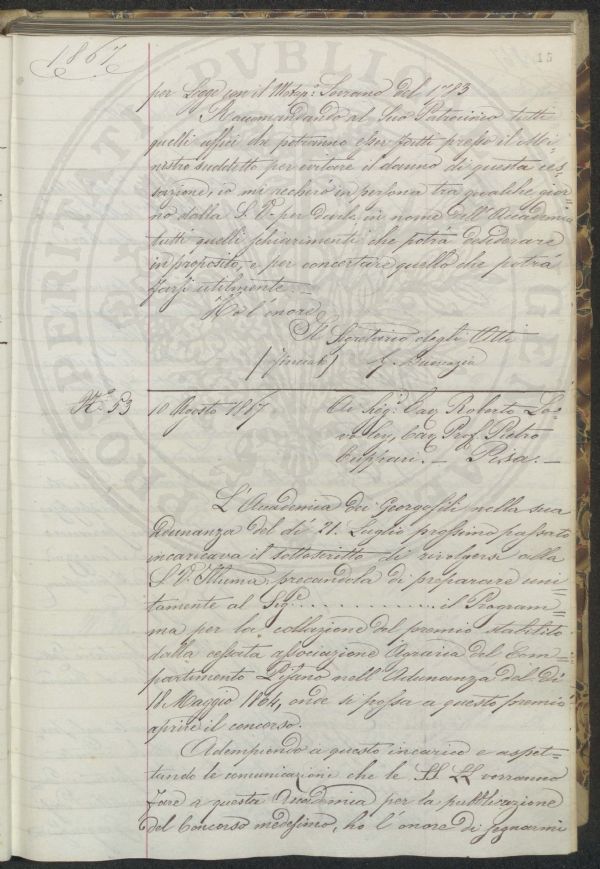 1867
15
per Legge con il Motup.º Sovrano del 1783
Raccomandando al Suo Patrocinio tutti
quelli uffici che potranno esser fatti presso il Mi=
nistro suddetto per evitare il danno di questa ces=
sazione, io mi recherò in persona tra qualche gior=
no dalla S. V. per darle in nome dell'Accademia
tutti quelli schiarimenti che potrà desiderare
in proposito, e per concertare quello che potrà
farsi utilmente.
Ho l'onore
Il Segretario degli Atti
(firmato)
N.º 53
10 Agosto 1867
Ai Sig.ri Cav. Roberto La=
wley, Cav. Prof. Pietro
Cuppari. — Pisa. —
L'Accademia dei Georgofili nella sua
Adunanza del dì 21. Luglio prossimo passato
incaricava il sottoscritto di rivolgersi alla
S. V. Illuma, pregandola di preparare uni=
tamente al Sig.e .............. il Program=
ma per la collazione del premio stabilito
dalla cessata associazione Agraria del Com=
partimento Pisano nell'Adunanza del dì
18 Maggio 1864, onde si possa a questo premio
aprire il concorso.
Adempiendo a questo incarico e aspet=
tando le comunicazioni che le SS. LL. vorranno
fare a questa Accademia per la pubblicazione
del Concorso medesimo, ho l'onore di segnarmi
PROSPERITATI PVBLICAE